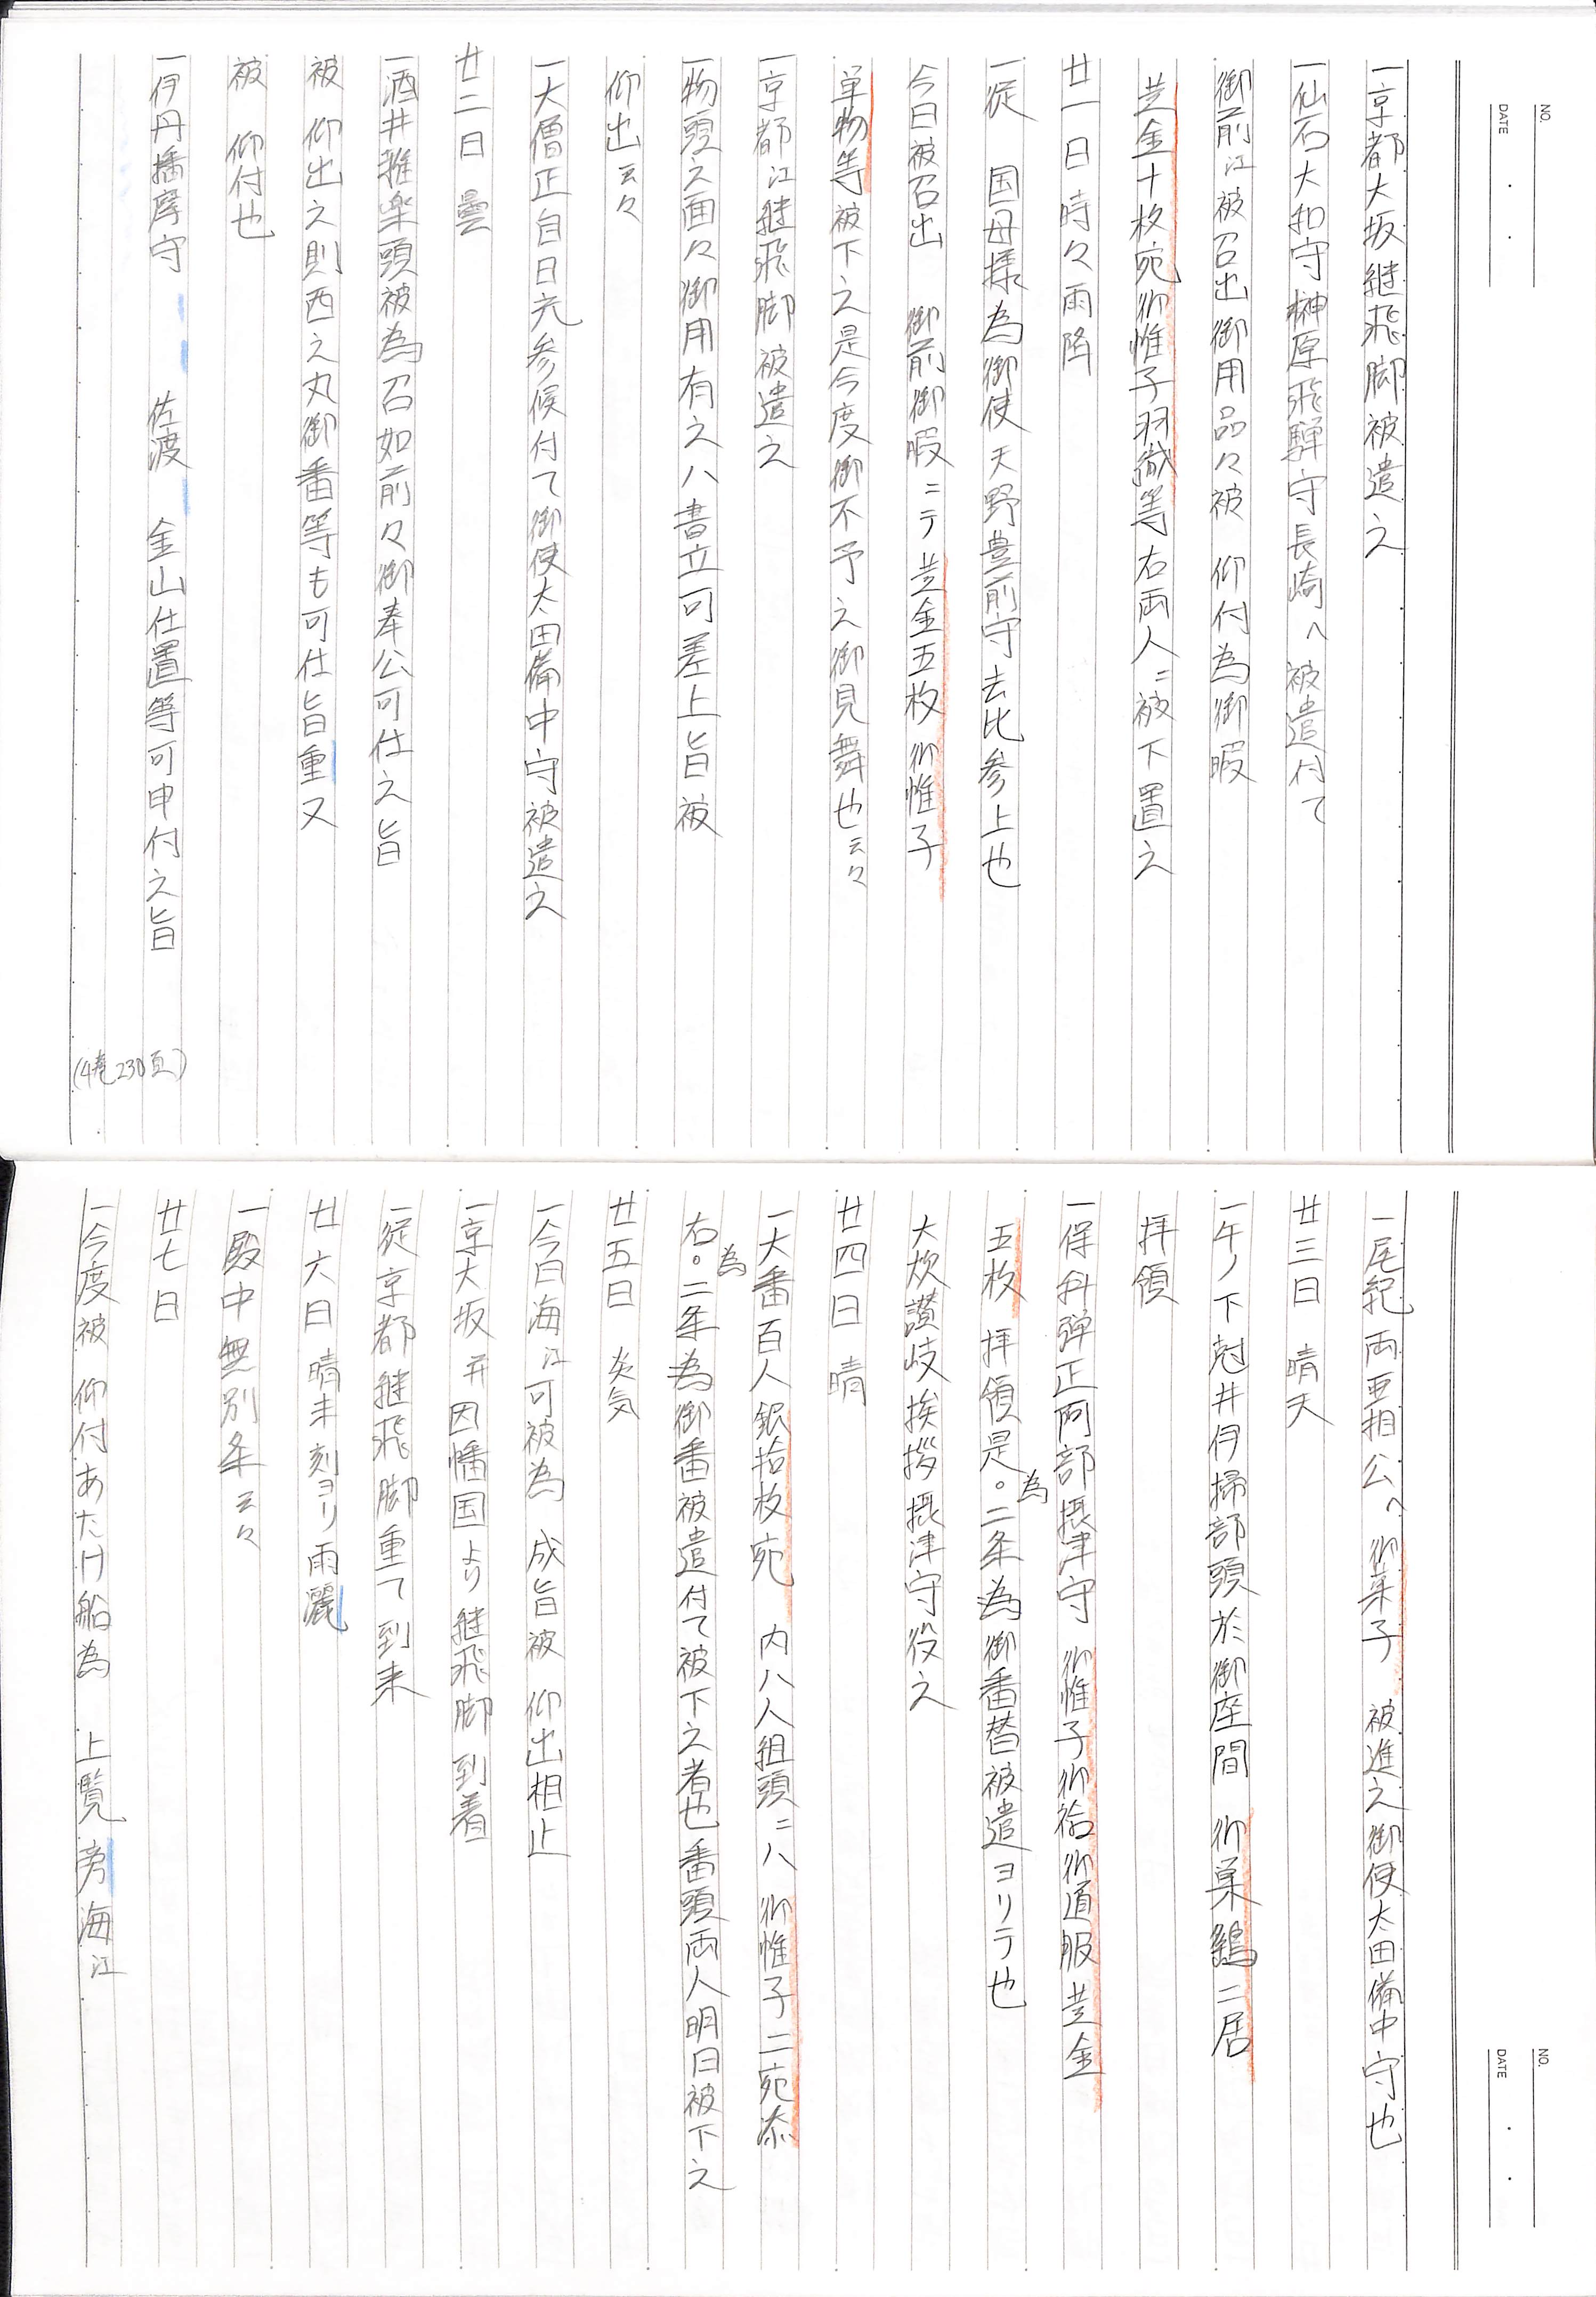 NO.
DATE
一京都大坂継飛脚被遣之
一仙石大和守榊原飛騨守長崎へ被遣付て
御前江被召出御用品々被　仰付為御暇
黄金十枚宛御帷子羽織等右両人ニ被下置之
廿一日時々雨降
一従　国母様為御使天野豊前守去比参上也
今日被召出　御前御暇ニテ黄金五枚御帷子
単物等被下之是今度御不予之御見舞也云々
一京都江継飛脚被遣之
一物頭之面々御用有之ハ書立可差上旨被
仰出云々
一大僧正自日光参候付て御使太田備中守被遣之
廿二日　曇
一酒井雅楽頭被為召如前々御奉公可仕之旨
被　仰出之則西之丸御番等も可仕旨重又
被　仰付也
一伊丹播磨守　佐渡　金山仕置等可申付之旨
(4巻230頁)
NO.
DATE
一尾紀両亜相公へ　御菓子　被進之御使太田備中守也
廿三日　晴天
一午ノ下尅井伊掃部頭於御座間　御巣鷂二居
拝領
一保科弾正阿部摂津守　御帷子御袷御道服黄金
五枚　拝領是。為二条為御番替被遣ヨリテ也
大炊讃岐挨拶摂津守役之
廿四日　晴
一大番百人銀拾枚宛　内八人組頭ニハ　御帷子二宛添
右。為二条為御番被遣付て被下之者也番頭両人明日被下之
廿五日　炎気
一今日海江可被為　成旨被　仰出相止
一京大坂并因幡国より継飛脚到着
一従京都継飛脚重て到来
廿六日　晴未刻ヨリ雨灑
一殿中無別条云々
廿七日
一今度被　仰付あたけ船為　上覧旁海江